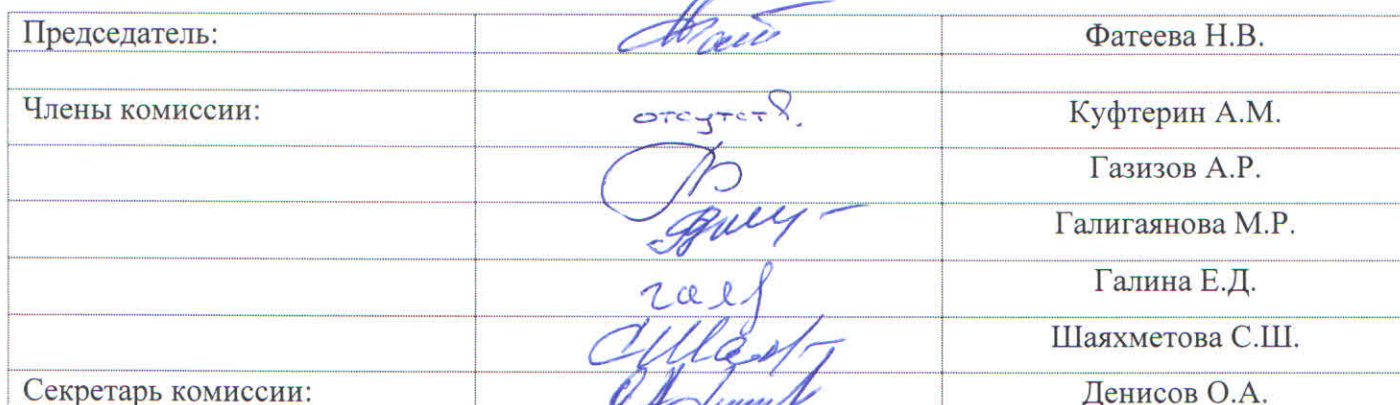 Председатель: Фатеева Н.В.
Члены комиссии: отсутств. Куфтерин А.М.
Газизов А.Р.
Галигаянова М.Р.
Галина Е.Д.
Шаяхметова С.Ш.
Секретарь комиссии: Денисов О.А.